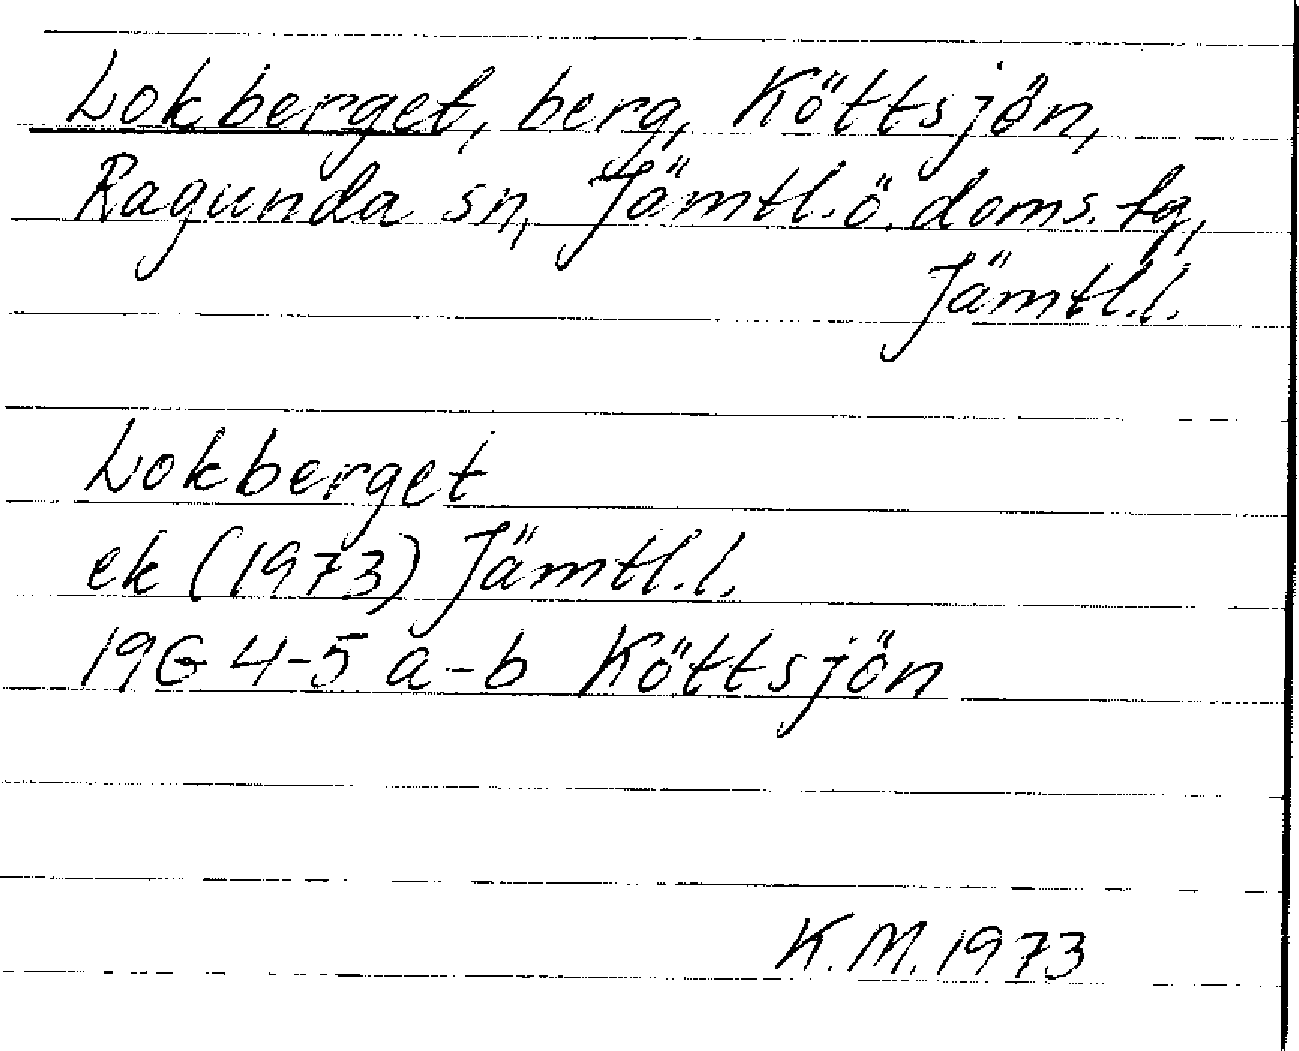 Lokberget, berg, Köttsjön,
Ragunda sn, Jämtl. ö. doms. tg,
Jämtl. l.
Lokberget
ek (1973) Jämtl. l.
19G 4-5 a-b Köttsjön
K. M. 1973